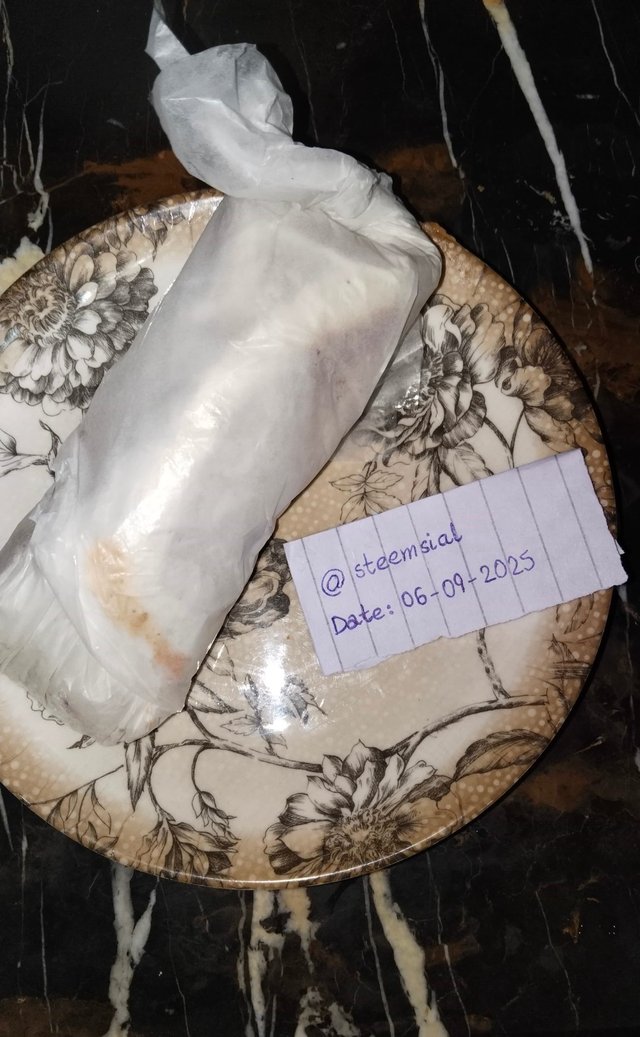 @ steemsial
Date: 06-09-2025